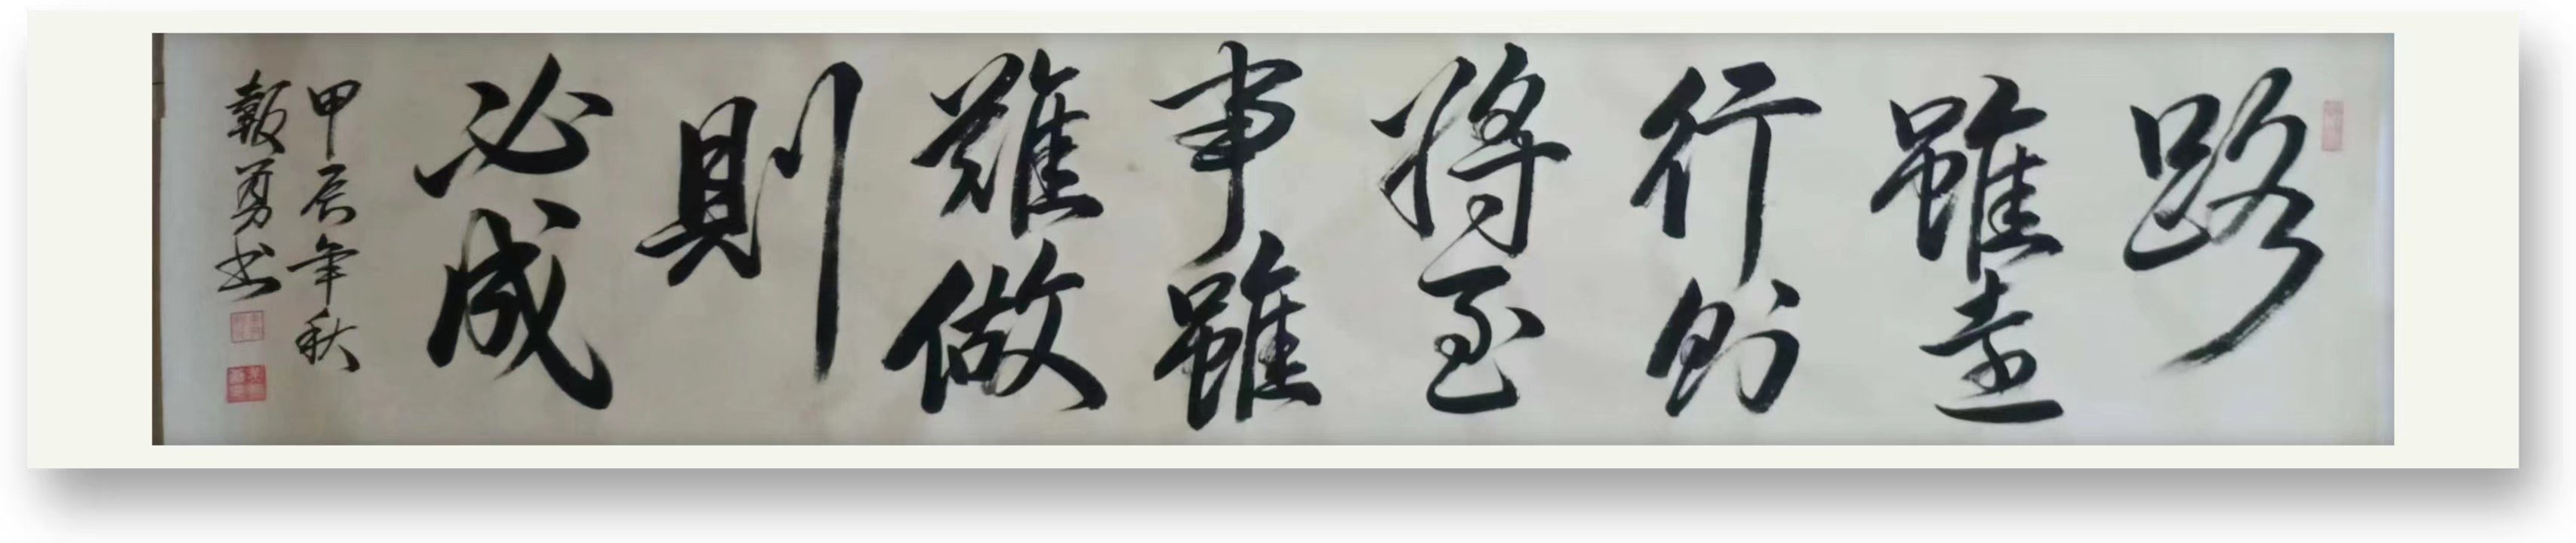 路
雖遠
行則
將至
事雖
難做
則
必成
甲辰年秋
報勇书